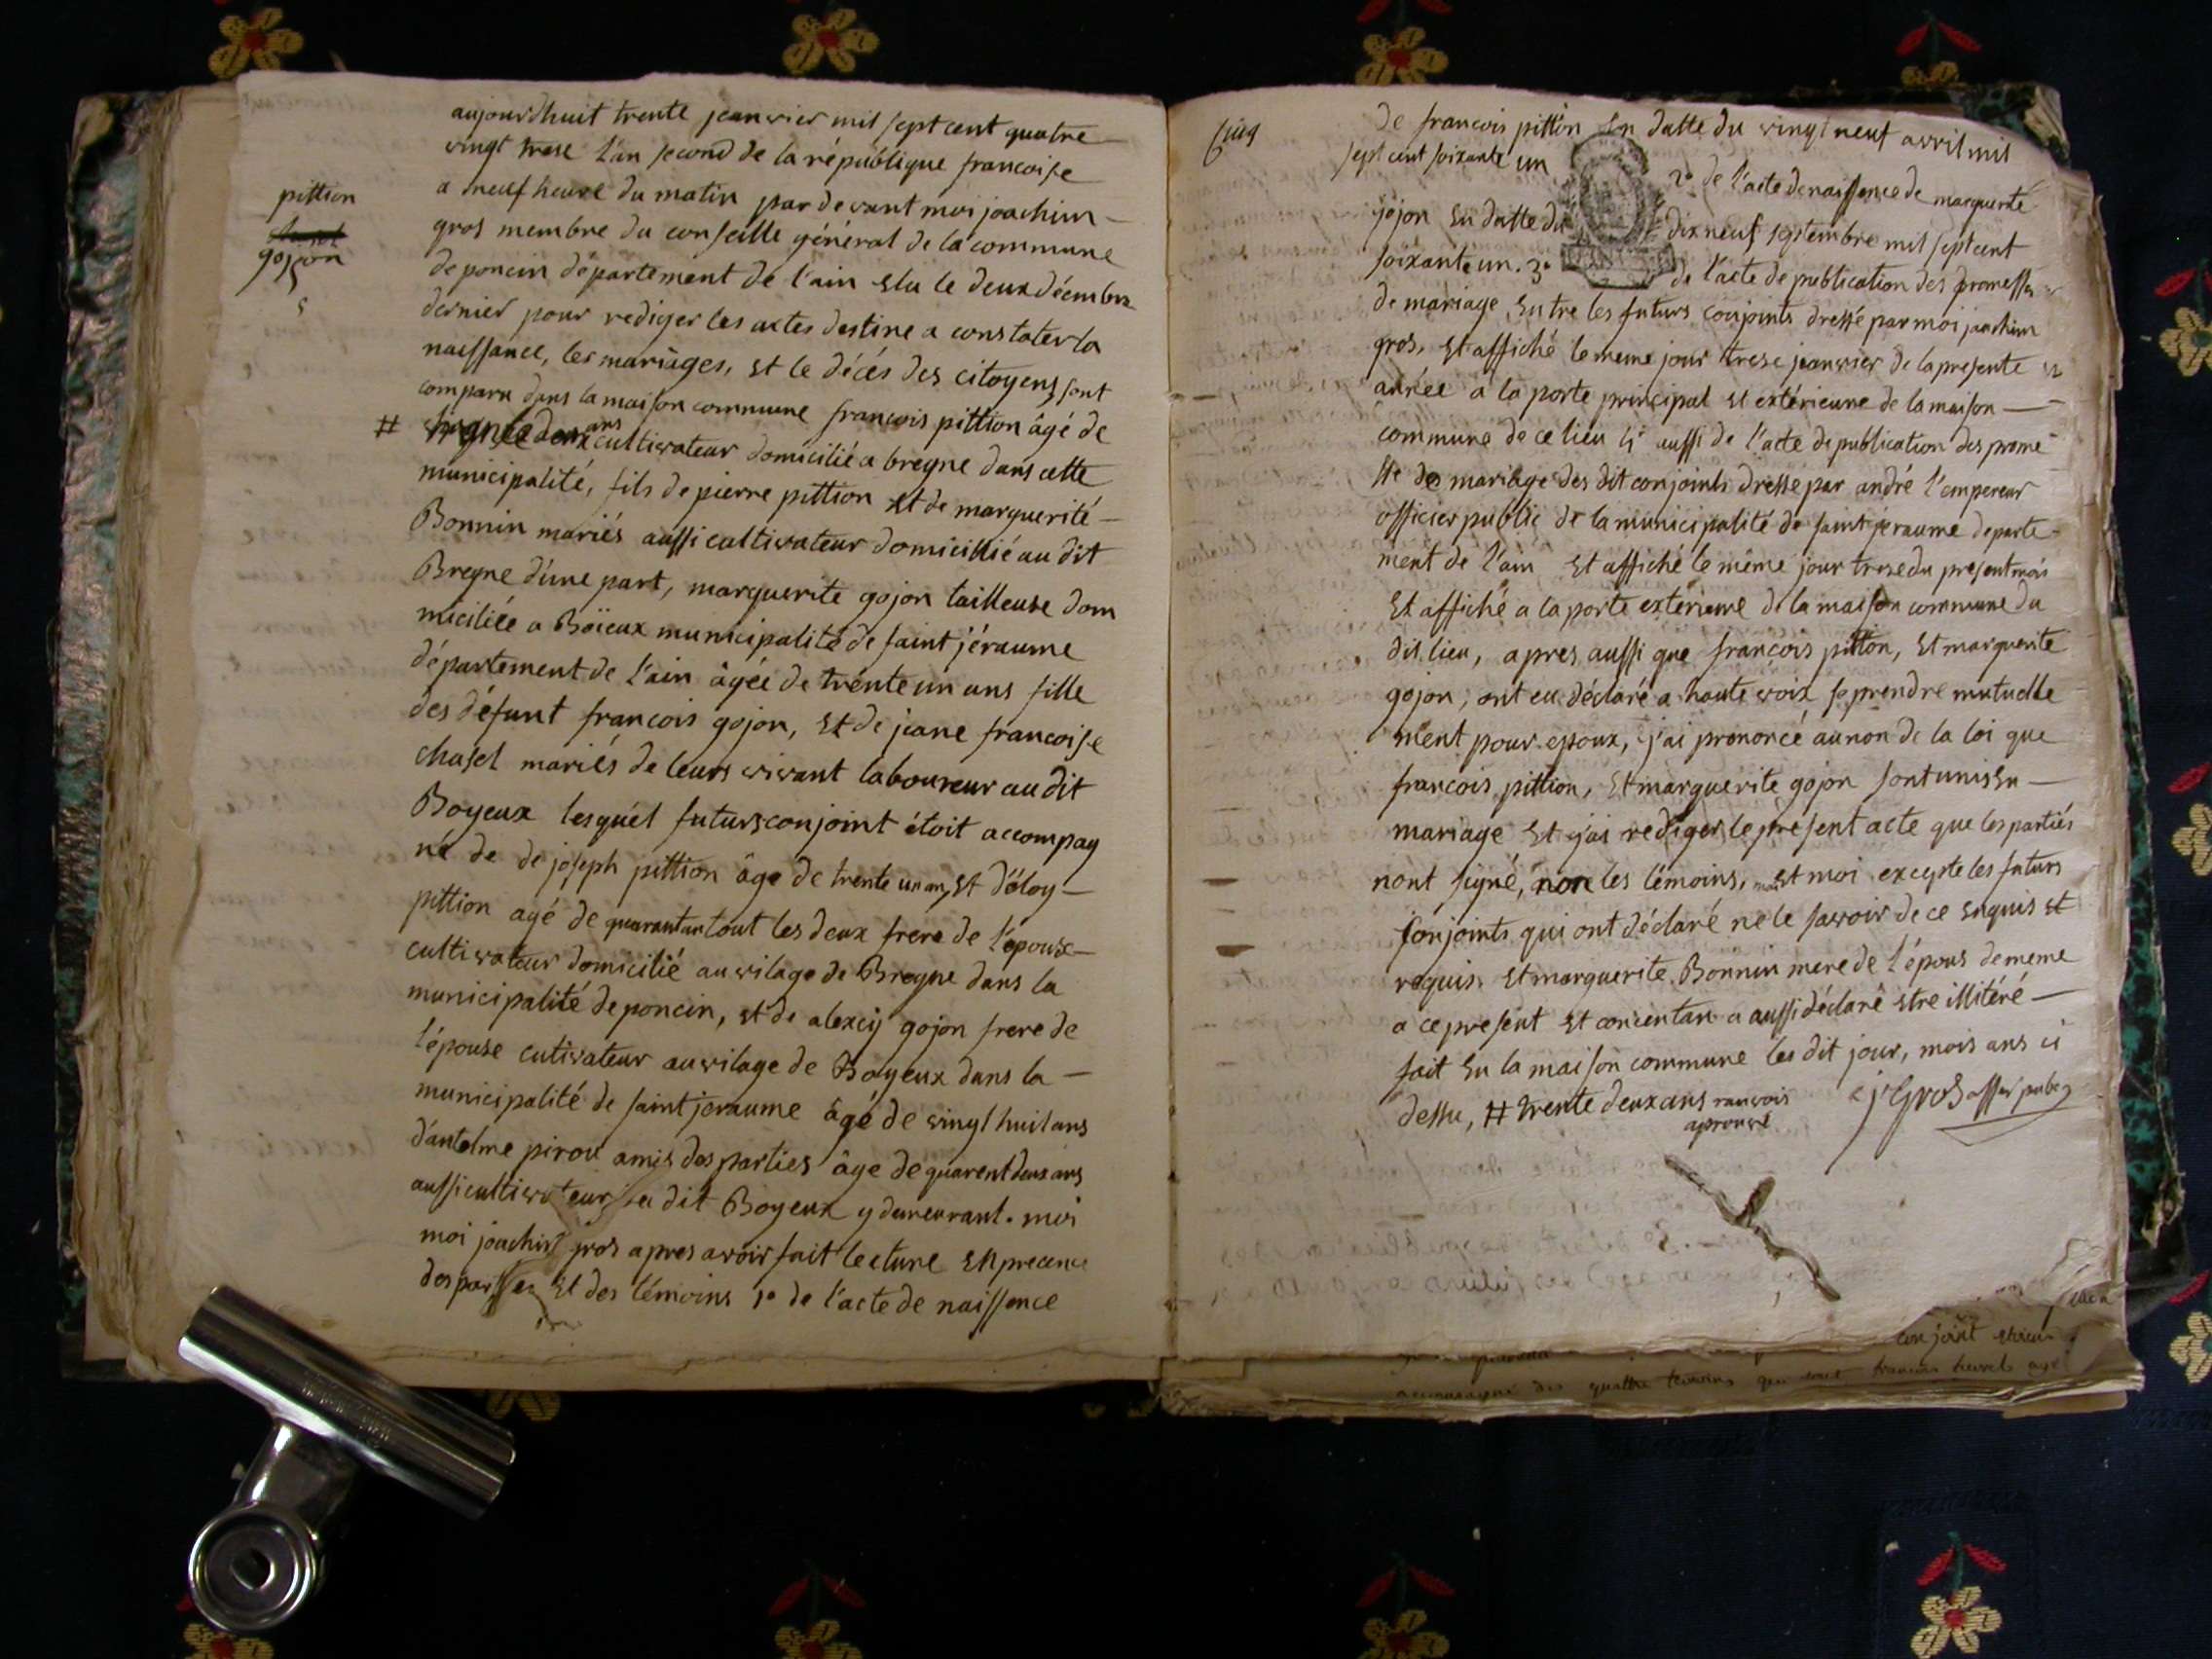 pittion
gojon
5
aujourdhuit trente jeanvier mil sept cent quatre
vingt trese l'an second de la république francoise
a neuf heure du matin par devant moi joachim
gros membre du conseille général de la commune
de poncin département de l'ain elu le deux décembre
dernier pour rediger les actes destine a constater la
naissance, les mariages, et le décés des citoyens sont
comparu dans la maison commune francois pittion âgé de
# ans cultivateur domicilié a breyne dans cette
municipalité, fils de pierre pittion et de marguerité
Bonnin mariés aussi cultivateur domicillié au dit
Breyne d'une part, marguerite gojon tailleuse dom
miciliée a Boïeux municipalité de saint jéraume
département de l'ain âgée de trénte un ans fille
des défunt francois gojon, et de jeane francoise
chasel mariés de leurs vivant laboureur au dit
Boyeux lesquél futurs conjoint étoit accompag
né de de joseph pittion âgé de trente un ans, et d'éloy
pittion agé de quarantan tout les deux frere de l'épouse
cultivateur domicilié au vilage de Breyne dans la
municipalité de poncin, et de alexcij gojon frere de
l'épouse cutivateur au vilage de Boyeux dans la
municipalité de saint jeraume âgé de vingt huit ans
d'antelme pirou amis des parties âge de quarent deux ans
aussi cultivateur au dit Boyeux y demeurant. moi
moi joachim gros apres avoir fait lecture en precence
des parties et des témoins 1º de l'acte de naissence
Cinq
de francois pittion en datte du vingt neuf avril mil
sept cent soixante un 2º de l'acte de naissence de marguerité
gojon en datte du dix neuf septembre mil sept cent
soixante un. 3º de l'acte de publication des promesses
de mariage entre les futurs conjoints dressé par moi joachim
gros, et affiché le meme jour trese jeanvier de la presente
année a la porte principal et extérieure de la maison
commune de ce lieu 4º aussi de l'acte de publication des prome
sse de mariage des dit conjoints dressé par andré l'empereur
officier public de la municipalité de saint jéraume departe
ment de l'ain et affiché le même jour trese du present mois
et affiché a la porte extérieure de la maison commune du
dit lieu, apres aussi que françois pittion, et marguerite
gojon, ont eu déclaré a haute voix se prendre mutuelle
ment pour epoux, j'ai prononcé au non de la loi que
francois pittion, et marguerite gojon sont unis en
mariage et j'ai rediger le présent acte que les partiés
nont signé, non les témoins, mais et moi excepte les futurs
conjoints qui ont déclaré ne le savoir de ce enquis et
requis et marguerite Bonnin mere de l'épous de meme
a ce present et concentan a aussi déclaré etre illitéré
fait en la maison commune les dit jour, mois ans ci
dessu, # trente deux ans ranvois
aprouvé
j Gros
conjoint
accompagné des quattre temoins qui sont francois